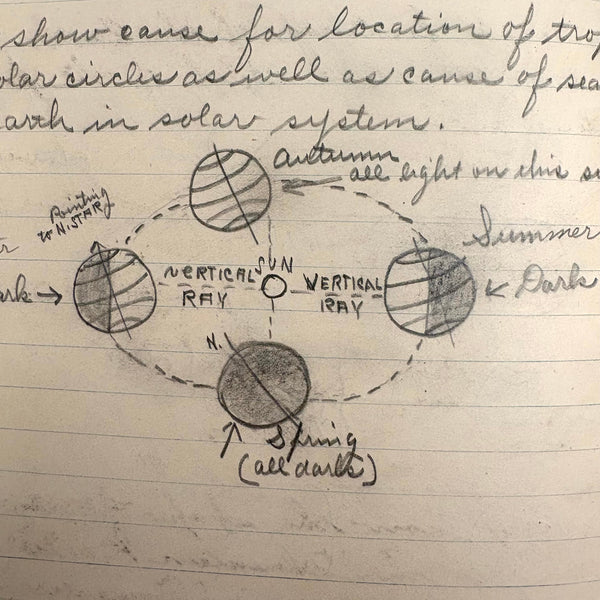 show cause for location of
circles as well as cause of
in solar system.
Autumn
all light on this
Pointing
to N. STAR
Summer
VERTICAL
RAY
SUN
VERTICAL
RAY
Dark
N.
Spring
(all dark)